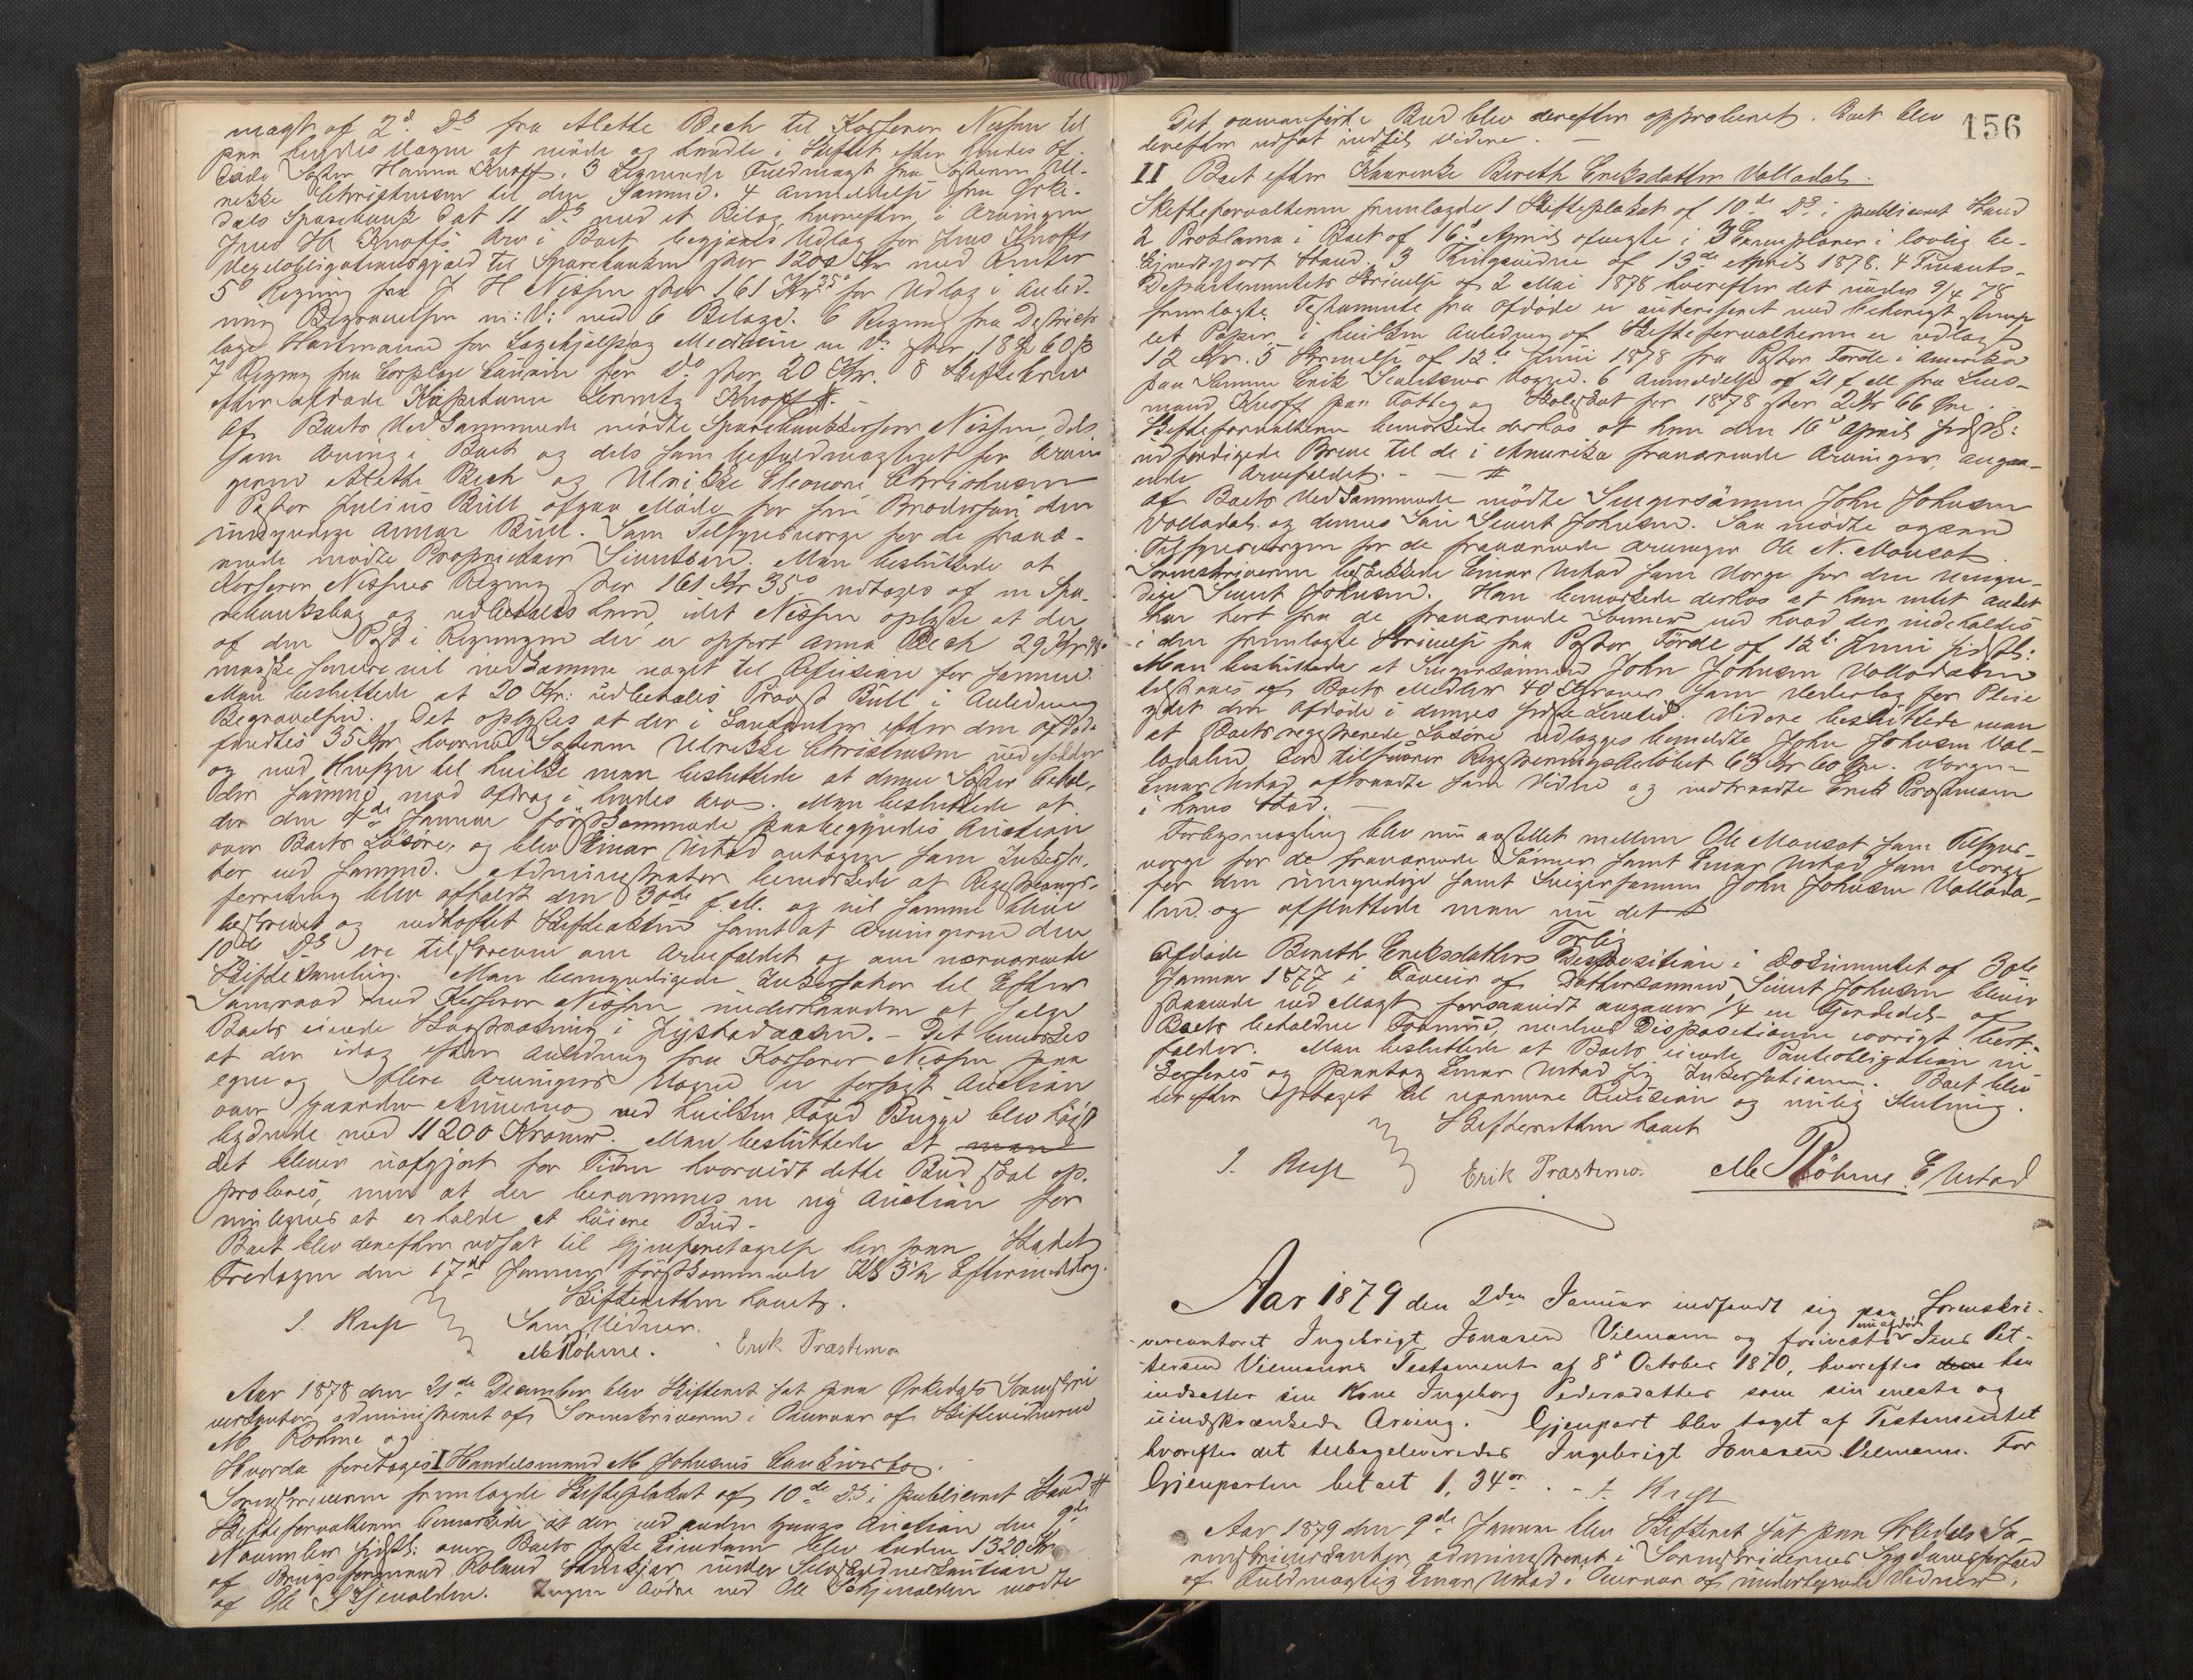 magt af 2d. Ds fra Alette Bech til Kasserer Nissen til
paa hendes Vegne at møde og handle i Skiftet efter hendes af-
døde Søster Hanna Knoff. 3 Lignende Fuldmagt fra Søsteren Ul-
rikke Christensen til den Samme. 4 Anmeldelse fra Orke-
dals Sparebank dat 11 Ds med et Bilag hvorefter i Arvingen
Jens H Knoffs Arv i Boet begjæres Udlæg for Jens Knoffs
Vexelobligationsgjæld til Sparebanken stor 1200 Kr med Renter
5o Regning fra J H Nissen stor 161 Kr 35o for Udlæg i Anled-
ning Begravelsen m: V: med 6 Bilage. 6 Regning fra Distrikts
læge Hartmann for Lægehjælp og Medicin m V: stor 18 Kr 60 Ø
7 Regning fra Corpslæge for Do stor 20 Kr. 8 Skiftebrev
efter afdøde Kapitain Knoff #.
Af Boets Vedkommende mødte Sparebankkasserer Nissen dels
som Arving i Boet og dels som befuldmægtiget for Arvin
gerne Alette Bech og Ulrikke Eleonore Christensen
Pastor Julius Bull afgav Møde for sin Brodersøn den
umyndige Anmar Bull. Som Tilsynsværge for de fravæ-
rende mødte Proprietær Sivertsen. Man besluttede at
Kasserer Nissens Regning stor 161 Kr 35o udtages af en Spa-
rebanksbog og udbetales ham, idet Nissen oplyste at der
af den Post i Regningen der er opført Anna Bech 29 Kr
maaske senere vil indkomme noget til Refusion for samme
Man besluttede at 20 Kr: udbetales Provst Bull i Anledning
Begravelsen. Det oplystes at der i Contanter efter den afdøde
fandtes 35 Kr hvorved Søsteren Ulrikke Christensen
og med Hensyn til hvilke man besluttede at denne Søster behol-
der samme mod Afdrag i hendes Arv. Man besluttede at
der den 7de Januar førstkommende paabegyndes Auction
over Boets Løsøre, og blev Einar Ustad antagen som Inkassa-
tor ved samme. Administrator bemærkede at Registrerings-
forretning blev afholdt den 30te f. M. og vil samme blive
beskrevet og vedhæftet Skifteakten samt at Arvingerne den
10de Ds ere tilskrevne om Arvefaldet og om nærværende
Skiftesamling. Man bemyndigede Inkassator til efter
Samraad med Kasserer Nissen underhaanden at sælge
Boets eiende i Jystadaasen. - Det bemærkes
at der idag efter Anledning fra Kasserer Nissen paa
egne og flere Arvingers Vegne er forsøgt Auction
over Gaarden ved hvilken Foged Bugge blev høist
bydende med 11200 Kroner. Man besluttede at man
det bliver uafgjort for Tiden hvorvidt dette Bud skal op-
proberes, men at der berammes en ny Auction for
muligens at erholde et høiere Bud.
Boet blev derefter udsat til Gjenforetagelse her paa Stedet
Fredagen den 17de Januar førstkommende Kl 3 1/2 Eftermiddag.
Skifteretten hævet.
J. Krefs Som Vidner.
M Röhme. Erik Præstmo
Aar 1878 den 21de December blev Skifteret sat paa Orkedals Sorenskri
verkontor, administreret af Sorenskriveren i Overvær af Skiftevidnerne
M. Rohme og
Hvorda foretoges I Handelsmand M Johnsens Concursbo.
Sorenskriveren fremlagde Skifteplakat af 10de Ds i publiceret Stand #
Skifteforvalteren bemærkede at der ved anden Gangs Auction den 9de
November sidstl: over Boets faste Eiendom blev buden 1320 Kr
af Brugsformand Roland under Selvskyldnerkaution
af Ole Skjenalden. Ingen Andre end Ole Skjenalden mødte
Det samme Bud blev derefter approberet. Boet blev
derefter udsat indtil videre.
156
II Boet efter Kaarenke Bereth Eriksdatter Volladal.
Skifteforvalteren fremlagde 1 Skifteplakat af 10de Ds i publiceret Stand
2 Proklama i Boet af 16de April i 3 Exemplarer i lovlig be-
kjendtgjort Stand. 3 Thingsvidne af 13de April 1878. 4 Finants-
Departementets Skrivelse af 2 Mai 1878 hvorefter det under 9/4 78
fremlagte Testamente fra afdøde er autoriseret med behørigt stemp
let Papir, i hvilken Anledning af Skifteforvalteren er udlagt
12 Kr. 5 Skrivelse af 12te Juni 1878 fra Pastor Førde i Amerika
paa Sønnen Erik Vegne. 6 Anmeldelse af 21 f M fra Lens-
mand Knoff paa Fattig og Skoleskat for 1878 stor 2 Kr 66 Øre
Skifteforvalteren bemærkede derhos at han den 16de April sidstl:
udfærdigede Breve til de i Amerika fraværende Arvinger angaa-
ende Arvefaldet. - #
Af Boets Vedkommende mødte Svigersønnen John Johnsen
Volladal og dennes Søn Sivert Johnsen. Saa mødte ogsaa
Tilsynsværgen for de fraværende Arvinger Ole N. Monsæt
Sorenskriveren beskikkede Einar Ustad som Værge for den Umyn-
dige Sivert Johnsen. Han bemærkede derhos at han intet andet
har hørt fra de fraværende Sønner end hvad der indeholdes
i den fremlagte Skrivelse fra Pastor Førde af 12te Juni sidstl:
Man besluttede at Svigersønnen John Johnsen Volladalen
tilstaaes af Boets Midler 40 Kroner som Vederlag for Pleie
ydet den Afdøde i dennes sidste Levetid. Videre besluttede man
at Boets registrerede Løsøre udlægges bemeldte John Johnsen Vol-
ladalen den tilsvarende Registreringsbeløbet 63 Kr 60 Øre. Værgen
Einar Ustad aftraadte som Vidne og indtraadte Erik Præstmoen
i hans Sted.
Forligsmægling blev nu anstillet mellem Ole Monsæt som Tilsyns-
værge for de fraværende Sønner samt Einar Ustad som Værge
for den umyndige samt Svigersønnen John Johnsen Vollada-
len. og afsluttede man nu det
Forlig
Afdøde Bereth Eriksdatters Disposition i Dokumentet af 30te
Januar 1877 i Faveur af Dattersønnen Sivert Johnsen bliver
staaende ved Magt forsaavidt angaaer 1/4 en Fjerdedel af
Boets beholdne Formue, medens Dispositionen iøvrigt bort-
falder. Man besluttede at Boets eiende Panteobligation in-
kasseres og paatog Einar Ustad sig Inkassationen. Boet blev
derefter optaget til nærmere Revision og mulig Slutning.
Skifteretten hævet
J. Krefs Erik Præstmo. M Röhme. E Ustad
Aar 1879 den 2den Januar indfandt sig paa Sorenskri-
vercontoret Ingebrigt Jonasen Vilmann og foreviste nu afdød Jens Pet-
tersen Vilmanns Testament af 8de October 1870, hvorefter denne han
indsætter sin Kone Ingeborg Pedersdatter som sin eneste og
uindskrænkede Arving. Gjenpart blev taget af Testamentet
hvorefter det tilbageleveredes Ingebrigt Jonasen Vilmann. For
Gjenparten betalt 1, 34or. - J. Krefs
Aar 1879 den 9de Januar blev Skifteret sat paa Orkedals So-
renskriverkontor, administreret i Sorenskriverens Sygdomsforfald
af Fuldmægtig Einar Ustad i Overvær af undertegnede Vidner.